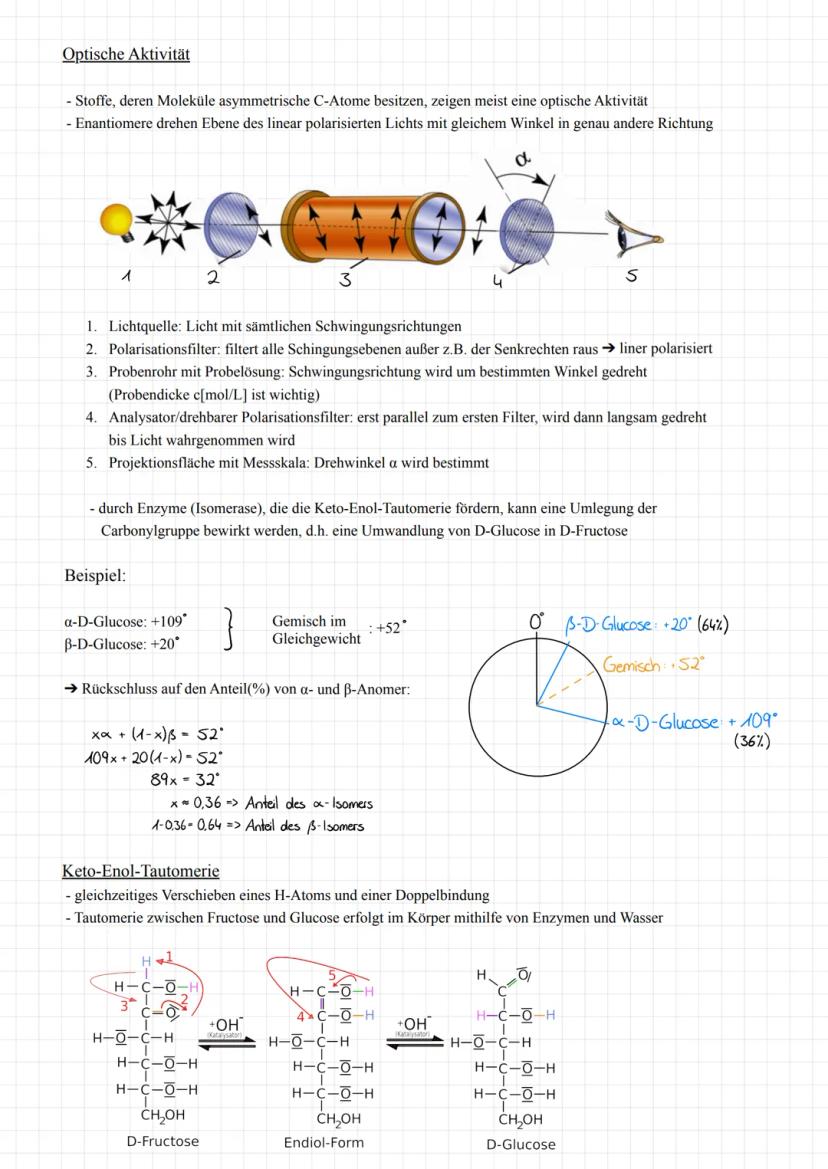 Optische Aktivität
- Stoffe, deren Moleküle asymmetrische C-Atome besitzen, zeigen meist eine optische Aktivität
- Enantiomere drehen Ebene des linear polarisierten Lichts mit gleichem Winkel in genau andere Richtung
α
1 2 3 4 5
1. Lichtquelle: Licht mit sämtlichen Schwingungsrichtungen
2. Polarisationsfilter: filtert alle Schingungsebenen außer z.B. der Senkrechten raus → liner polarisiert
3. Probenrohr mit Probelösung: Schwingungsrichtung wird um bestimmten Winkel gedreht
(Probendicke c[mol/L] ist wichtig)
4. Analysator/drehbarer Polarisationsfilter: erst parallel zum ersten Filter, wird dann langsam gedreht
bis Licht wahrgenommen wird
5. Projektionsfläche mit Messskala: Drehwinkel α wird bestimmt
- durch Enzyme (Isomerase), die die Keto-Enol-Tautomerie fördern, kann eine Umlegung der
Carbonylgruppe bewirkt werden, d.h. eine Umwandlung von D-Glucose in D-Fructose
Beispiel:
α-D-Glucose: +109°
β-D-Glucose: +20°
}
Gemisch im
Gleichgewicht
: +52°
→ Rückschluss auf den Anteil(%) von α- und β-Anomer:
xα + (1-x)β = 52°
109x + 20(1-x) = 52°
89x = 32°
x ≈ 0,36 => Anteil des α-Isomers
1-0,36 = 0,64 => Anteil des β-Isomers
0°
β-D-Glucose: +20° (64%)
Gemisch: +52°
α-D-Glucose: +109°
(36%)
Keto-Enol-Tautomerie
- gleichzeitiges Verschieben eines H-Atoms und einer Doppelbindung
- Tautomerie zwischen Fructose und Glucose erfolgt im Körper mithilfe von Enzymen und Wasser
H 1
H-C-O-H
3 2
C=O
H-O-C-H
H-C-O-H
H-C-O-H
CH₂OH
D-Fructose
+OH⁻
(Katalysator)
5
H-C-O-H
4 C-O-H
H-O-C-H
H-C-O-H
H-C-O-H
CH₂OH
Endiol-Form
+OH⁻
(Katalysator)
H O
C
H-C-O-H
H-O-C-H
H-C-O-H
H-C-O-H
CH₂OH
D-Glucose